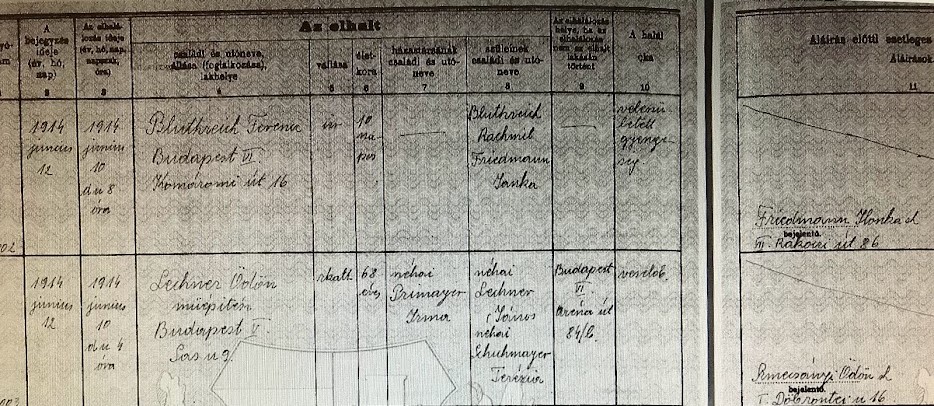 Az elhalt
A bejegyzés ideje (év, hó, nap)
Az elhalálozás ideje (év, hó, nap, napszak, óra)
családi és utóneve, állása (foglalkozása), lakhelye
vallása
életkora
házastársának családi és utóneve
szüleinek családi és utóneve
Az elhalálozás helye, ha az elhalálozás nem az elhalt lakásán történt
A halál oka
Aláírás előtti esetleges
Aláírások
2
3
4
5
6
7
8
9
10
11
1914 június 12
1914 június 10 d u 8 óra
Bluthreich Ferenc
Budapest VI
Komáromi út 16
izr
10 napos
Bluthreich
Rachmil
Friedmann
Janka
velenületett gyengeség
Friedmann Ilonka
bejelentő.
VII. Rákóczi út 86
1914 június 12
1914 június 10 d u 4 óra
Lechner Ödön
műépítész
Budapest V.
Sas u 9.
rkath
68 éves
néhai
Primayer
Irma
néhai
Lechner
János
néhai
Schuhmayer
Terézia
Budapest
VI.
Aréna út
84/b.
veselob
Ödön
bejelentő.
I. Döbrentei u 16